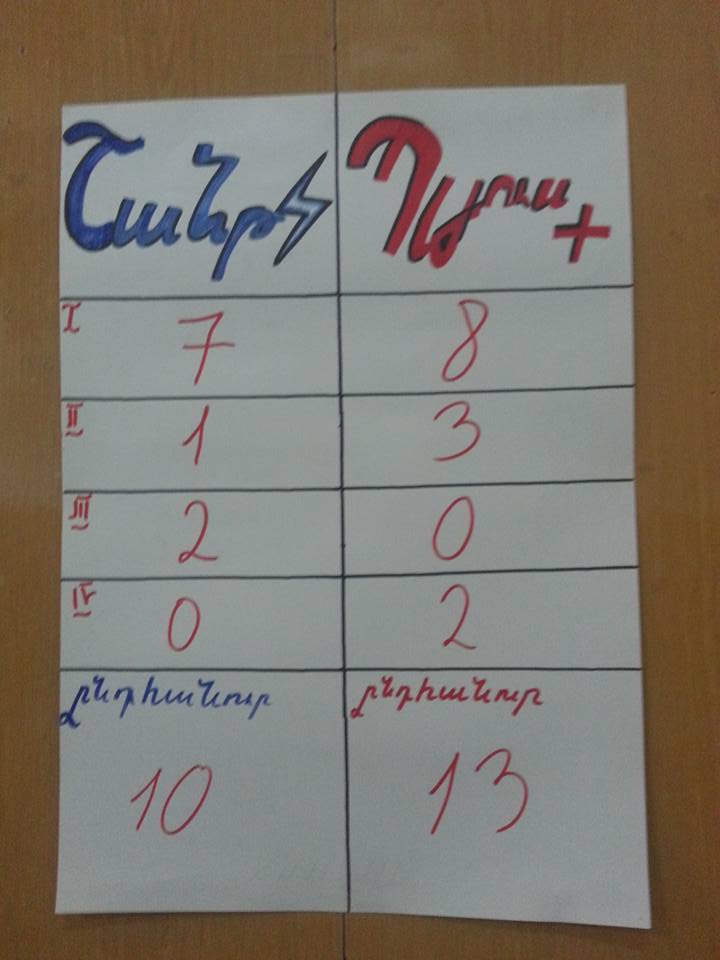 Շանթ Պլյուս +
I 7 8
II 1 3
III 2 0
IV 0 2
ընդհանուր ընդհանուր
10 13